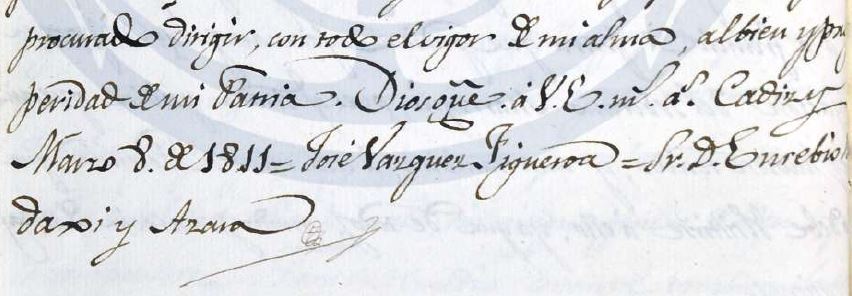 procurado dirigir, con todo el vigor de mi alma, al bien y pros
peridad de mi Patria. Dios gũe. á V. E. ms. as. Cadiz y
Marzo 8. de 1811 = José Vazquez Figueroa = Sr. D. Eusebio
daxi y Azara